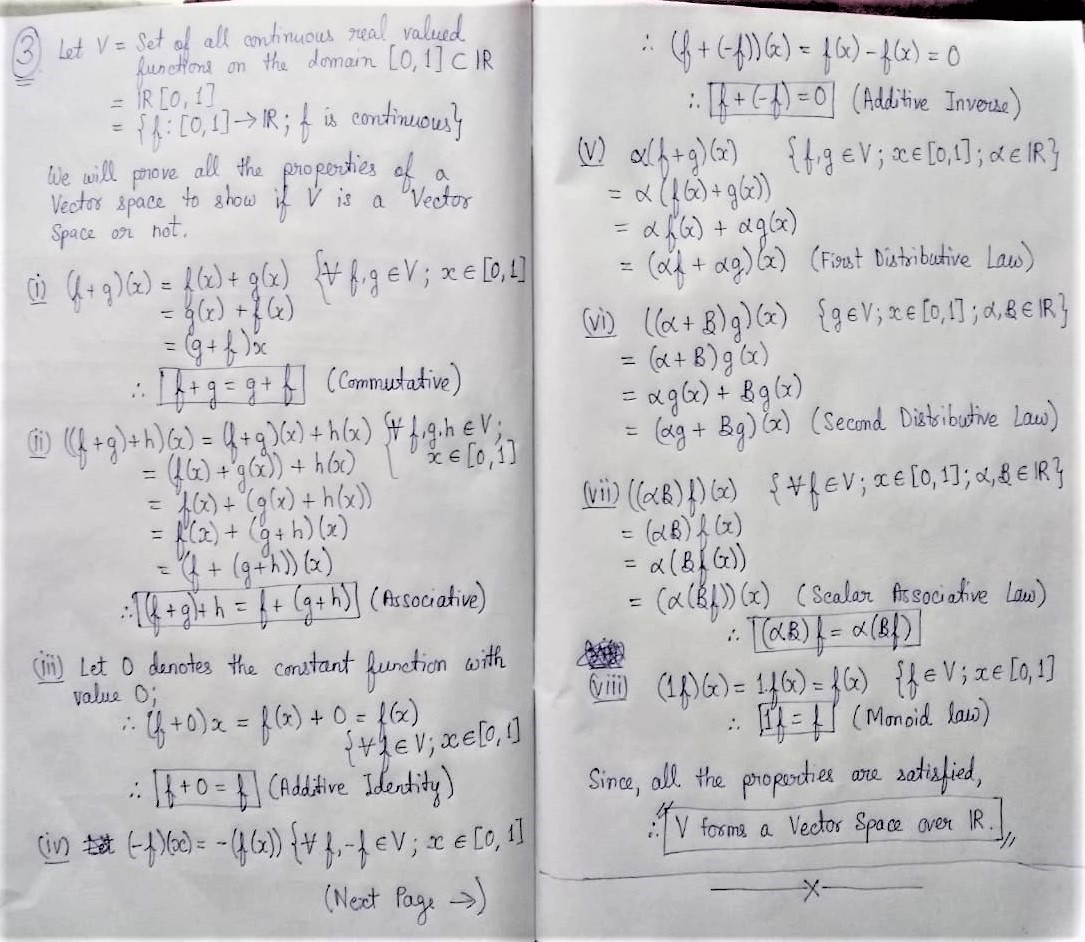 ③ Let V = Set of all continuous real valued
functions on the domain [0,1] ⊂ IR
= IR[0,1]
= {f: [0,1] → IR; f is continuous}
We will prove all the properties of a
Vector space to show if V is a Vector
Space or not.
(i) (f+g)(x) = f(x) + g(x) {∀ f,g ∈ V; x ∈ [0,1]
= g(x) + f(x)
= (g+f)x
∴ f+g = g+f (Commutative)
(ii) ((f+g)+h)(x) = (f+g)(x) + h(x) {∀ f,g,h ∈ V;
x ∈ [0,1]
= (f(x) + g(x)) + h(x)
= f(x) + (g(x) + h(x))
= f(x) + (g+h)(x)
= (f + (g+h))(x)
∴ (f+g)+h = f+(g+h) (Associative)
(iii) Let 0 denotes the constant function with
value 0;
∴ (f+0)x = f(x) + 0 = f(x)
{∀ f ∈ V; x ∈ [0,1]
∴ f+0 = f (Additive Identity)
(iv) (-f)(x) = -(f(x)) {∀ f,-f ∈ V; x ∈ [0,1]
(Next Page →)
∴ (f+(-f))(x) = f(x) - f(x) = 0
∴ f+(-f) = 0 (Additive Inverse)
(v) α(f+g)(x) {f,g ∈ V; x ∈ [0,1]; α ∈ IR}
= α(f(x) + g(x))
= αf(x) + αg(x)
= (αf + αg)(x) (First Distributive Law)
(vi) ((α+B)g)(x) {g ∈ V; x ∈ [0,1]; α,B ∈ IR}
= (α+B)g(x)
= αg(x) + Bg(x)
= (αg + Bg)(x) (Second Distributive Law)
(vii) ((αB)f)(x) {∀ f ∈ V; x ∈ [0,1]; α,B ∈ IR}
= (αB)f(x)
= α(Bf(x))
= (α(Bf))(x) (Scalar Associative Law)
∴ (αB)f = α(Bf)
(viii) (1f)(x) = 1.f(x) = f(x) {f ∈ V; x ∈ [0,1]
∴ 1f = f (Monoid law)
Since, all the properties are satisfied,
∴ V forms a Vector Space over IR.